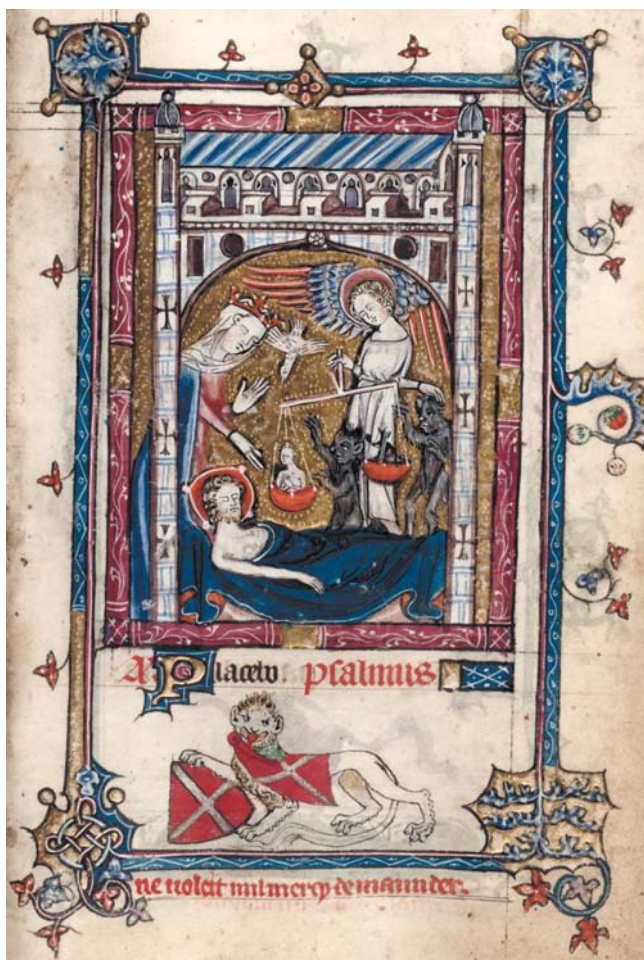 A Placebo psalmus
ne uoleit nul mercy de maunder.